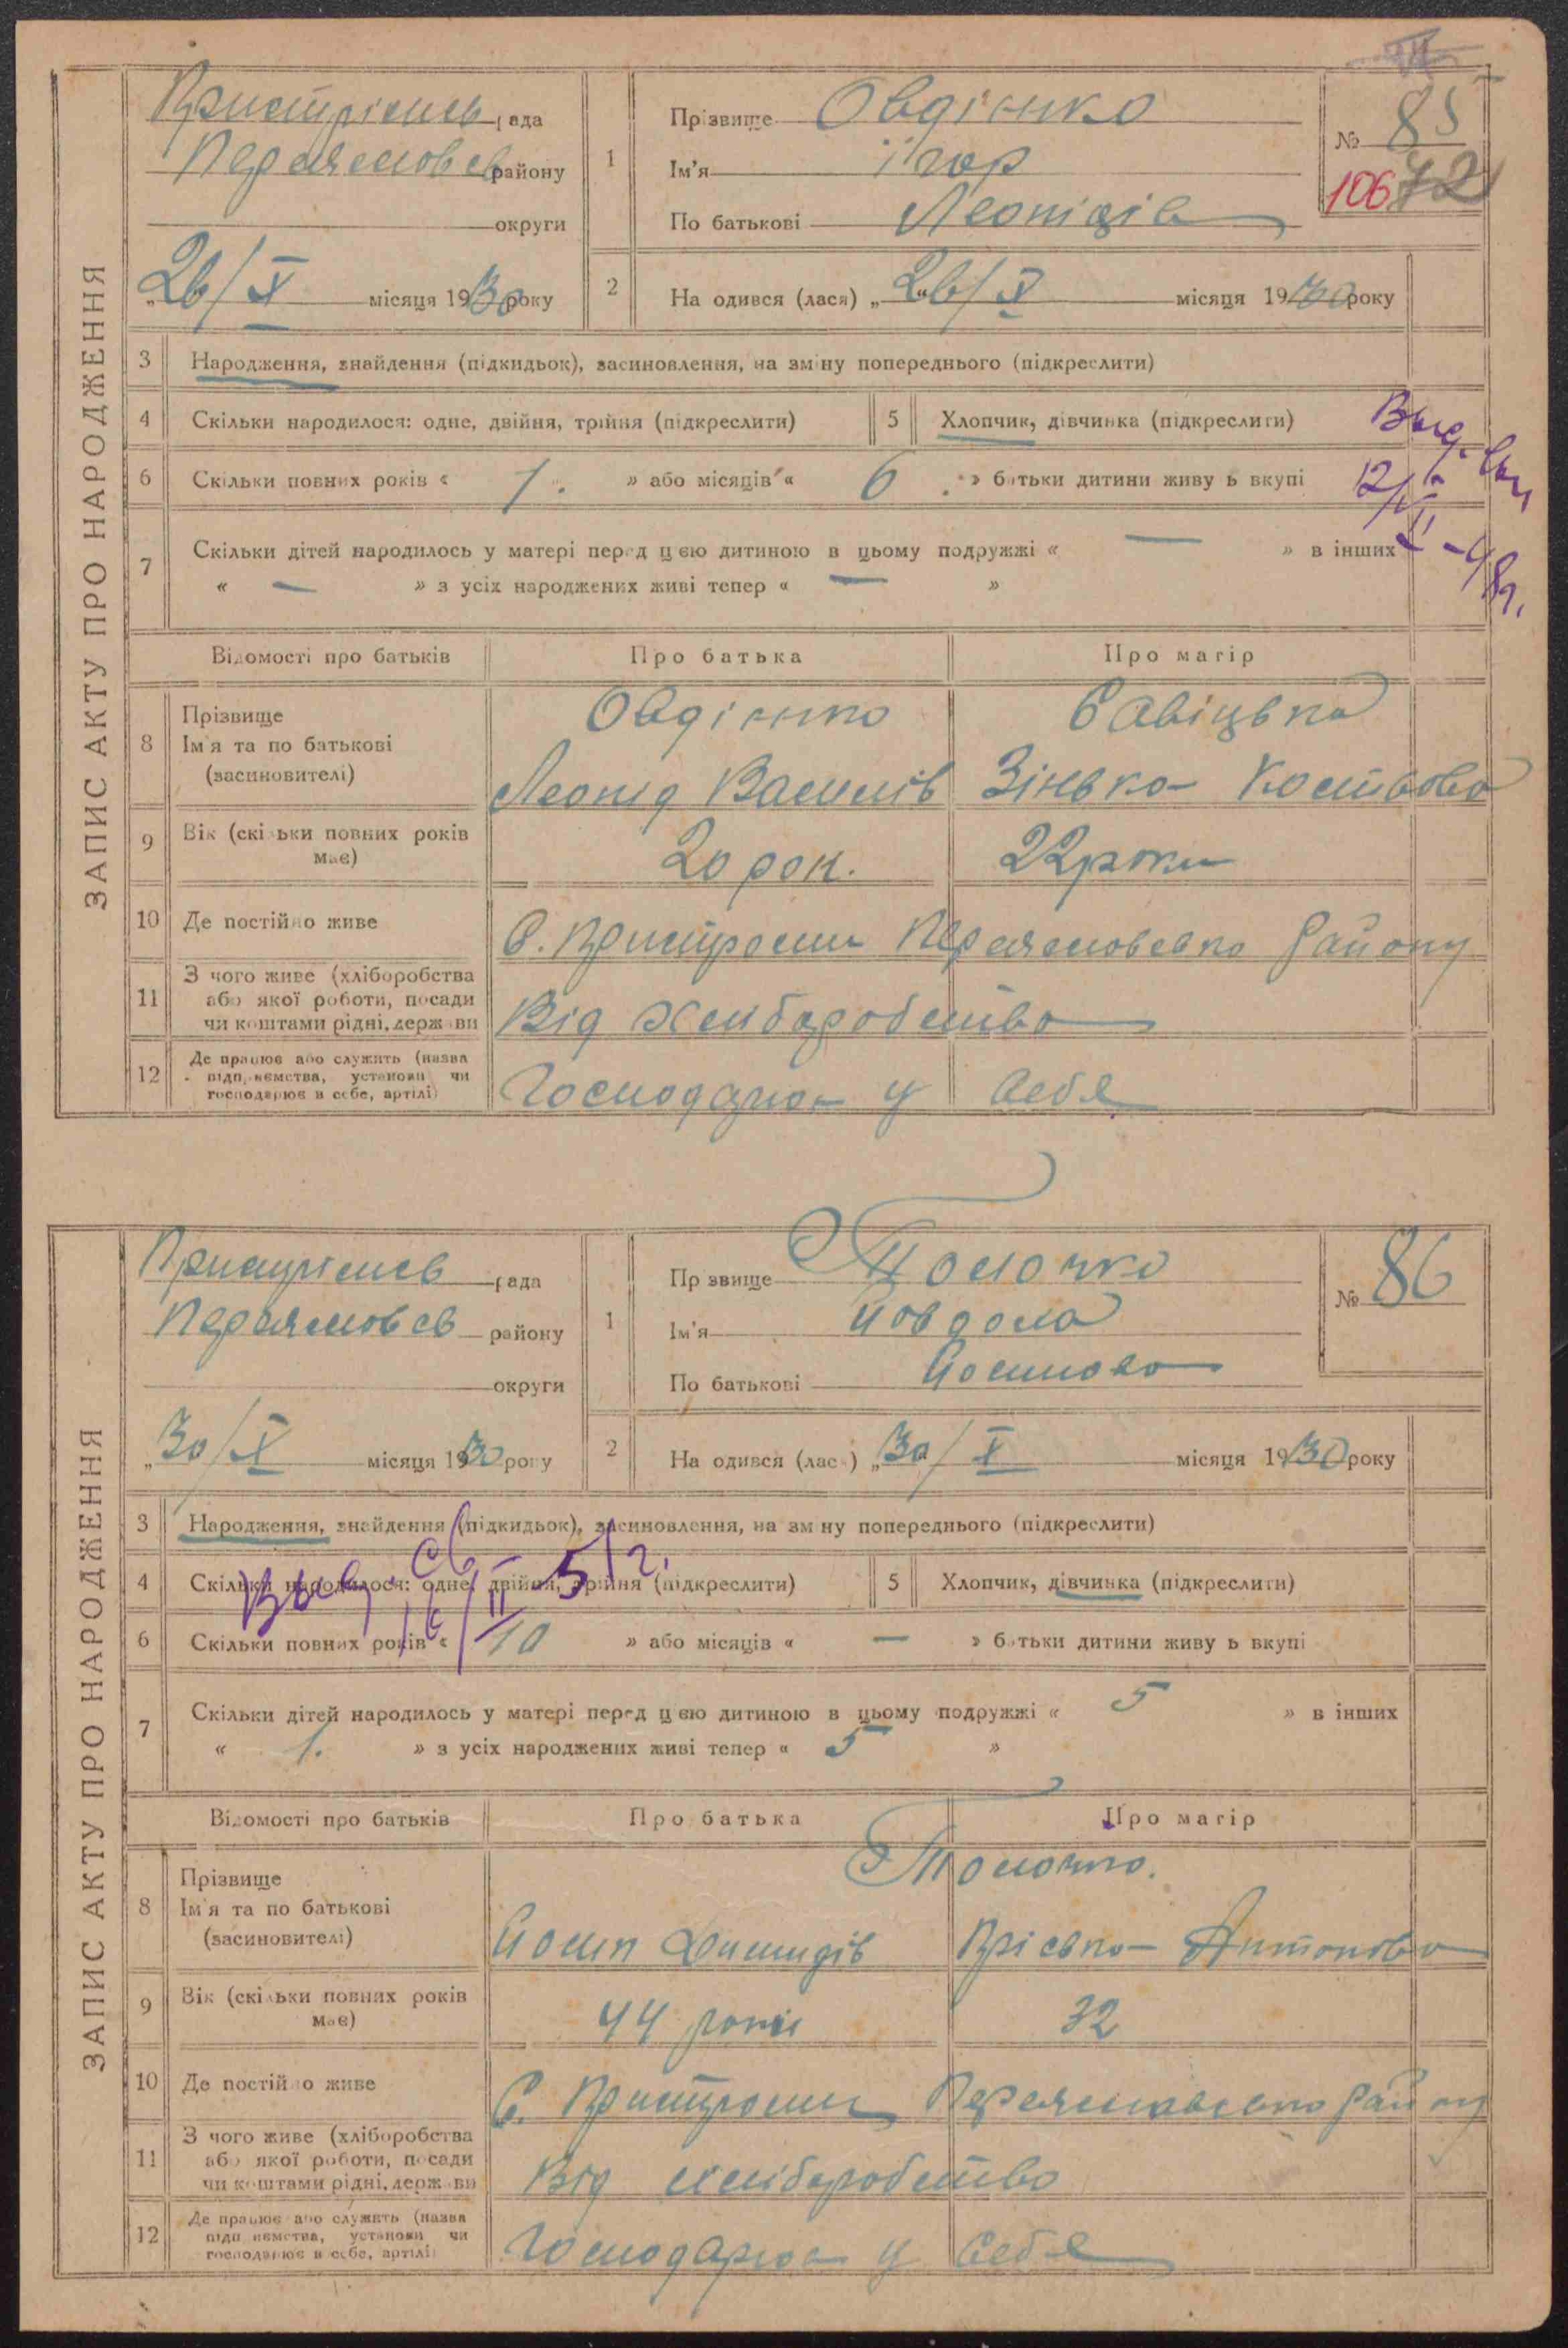 ЗАПИС АКТУ ПРО НАРОДЖЕННЯ
Пристріемсь рада
Переяслов ськ району
округи
„26/X місяця 1930 року
1
Прізвище Овдіенко
Ім'я Ігор
По батькові Леонідів
№ 85
106 72
2
Народився (лася) „26/X місяця 1930 року
3 Народження, знайдення (підкидьок), засиновлення, на зміну попереднього (підкреслити)
4 Скільки народилося: одне, двійня, трійня (підкреслити)
5 Хлопчик, дівчинка (підкреслити)
6 Скільки повних років « 1. » або місяців « 6. » батьки дитини живуть вкупі
12/VI - 48г.
7 Скільки дітей народилось у матері перед цією дитиною в цьому подружжі « — » в інших
« — » з усіх народжених живі тепер « — »
Відомості про батьків Про батька Про матір
8 Прізвище
Ім'я та по батькові
(засиновителі)
Овдіенко Савіцька
Леонід Василів Зінька Костьова
9 Вік (скільки повних років має)
20 рок. 22 роки
10 Де постійно живе
С. Пристроми Переясловсько Району
11 З чого живе (хліборобства
або якої роботи, посади
чи коштами рідні, держави
Від хліборобства
12 Де працює або служить (назва
підприємства, установи чи
господарює в себе, артілі)
Господарює у себя
ЗАПИС АКТУ ПРО НАРОДЖЕННЯ
рада
Переяслов св району
округи
„30/X місяця 1930 року
1
Прізвище Толочко
Ім'я Йовдоха
По батькові Йосипова
№ 86
2
Народився (лася) „30/X місяця 1930 року
3 Народження, знайдення (підкидьок), засиновлення, на зміну попереднього (підкреслити)
4 Скільки народилося: одне, двійня, трійня (підкреслити)
Выд. св. 16/II 51г.
5 Хлопчик, дівчинка (підкреслити)
6 Скільки повних років « 10 » або місяців « — » батьки дитини живуть вкупі
7 Скільки дітей народилось у матері перед цією дитиною в цьому подружжі « 5 » в інших
« 1. » з усіх народжених живі тепер « 5 »
Відомості про батьків Про батька Про матір
8 Прізвище
Ім'я та по батькові
(засиновителі)
Толочко.
Йосип Антонова
9 Вік (скільки повних років має)
44 роки 32
10 Де постійно живе
С. Пристроми Переясловсько району
11 З чого живе (хліборобства
або якої роботи, посади
чи коштами рідні, держави
Від хліборобства
12 Де працює або служить (назва
підприємства, установи чи
господарює в себе, артілі)
Господарює у себя